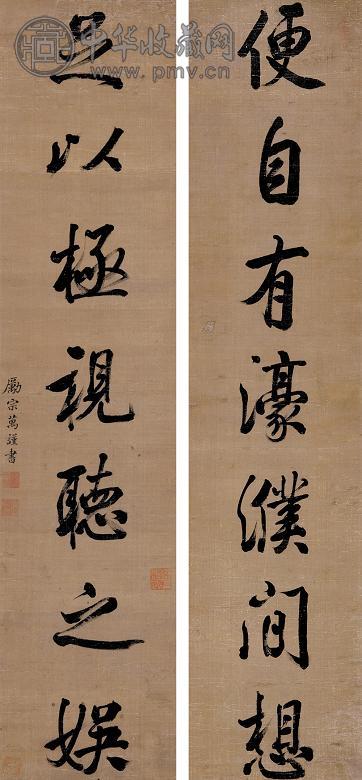 便自有濠濮间想
足以極視聽之娱
勵宗萬謹書
中华收藏网
www.pmv.cn